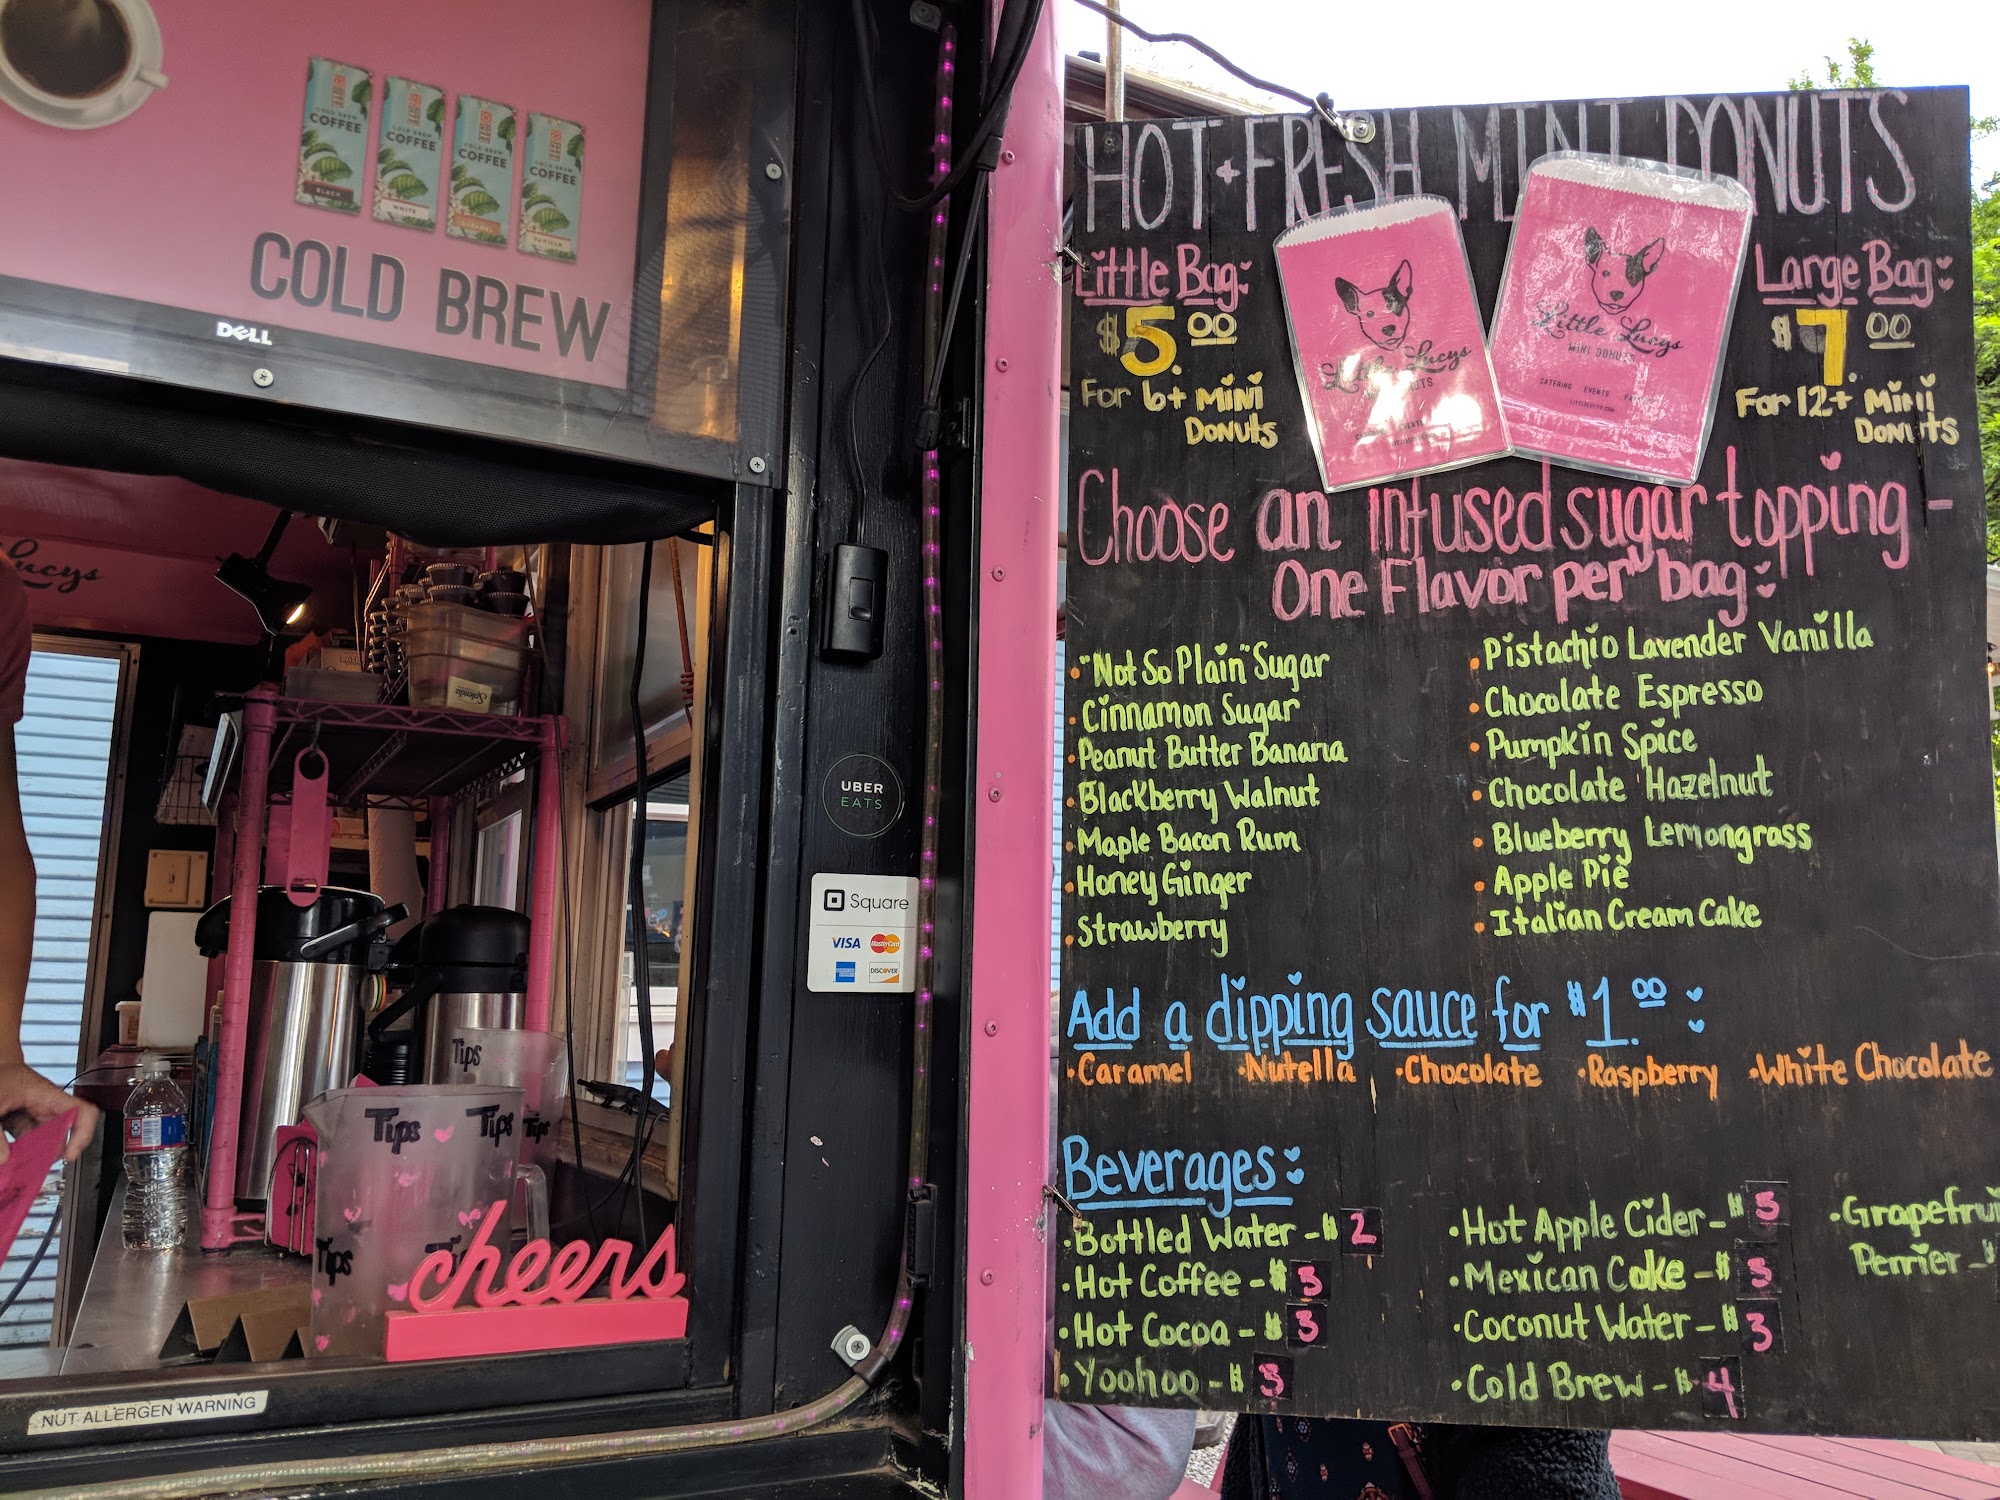 COLD BREW
COFFEE
BLACK
COLD BREW
COFFEE
WHITE
COLD BREW
COFFEE
COLD BREW
COFFEE
VANILLA
COLD BREW
DELL
Lucys
Splenda
UBER
EATS
Square
VISA MasterCard
AMERICAN EXPRESS DISCOVER
Tips
Tips Tips Tips
Tips
cheers
NUT ALLERGEN WARNING
HOT + FRESH MINI DONUTS
Little Bag:
$5.00
For 6+ Mini
Donuts
Little Lucys
CATERING EVENTS
Little Lucys
MINI DONUTS
CATERING EVENTS
LITTLELUCYS.COM
Large Bag:
$7.00
For 12+ Mini
Donuts
Choose an infused sugar topping -
One Flavor per bag:
• "Not So Plain" Sugar
• Cinnamon Sugar
• Peanut Butter Banana
• Blackberry Walnut
• Maple Bacon Rum
• Honey Ginger
• Strawberry
• Pistachio Lavender Vanilla
• Chocolate Espresso
• Pumpkin Spice
• Chocolate Hazelnut
• Blueberry Lemongrass
• Apple Pie
• Italian Cream Cake
Add a dipping sauce for $1.00:
• Caramel • Nutella • Chocolate • Raspberry • White Chocolate
Beverages:
• Bottled Water - $2
• Hot Coffee - $3
• Hot Cocoa - $3
• Yoohoo - $3
• Hot Apple Cider - $3
• Mexican Coke - $3
• Coconut Water - $3
• Cold Brew - $4
• Grapefrui
Perrier - $